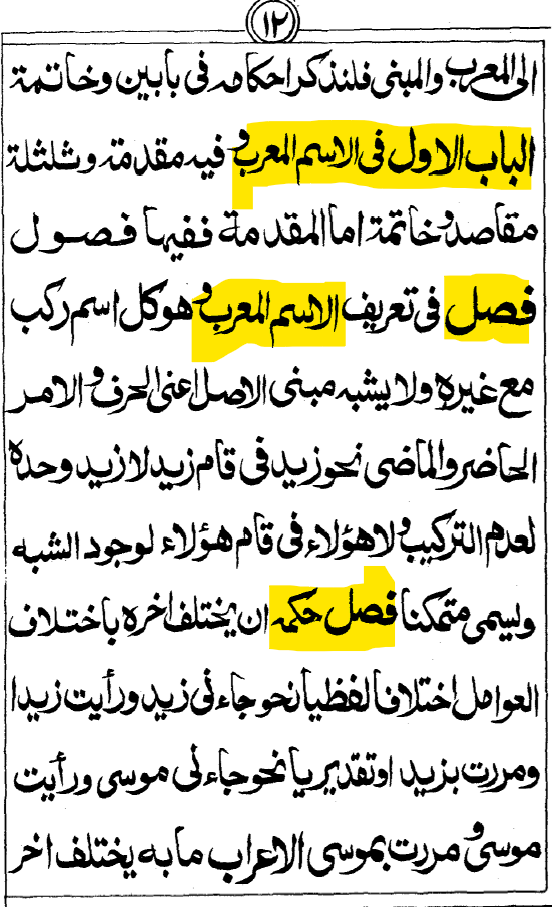 ١٢
الى المعرب والمبنى فلنذكر احكامه فى بابين وخاتمة
الباب الاول فى الاسم المعرب وفيه مقدمة وثلثلة
مقاصد وخاتمة اما المقدمة ففيها فصول
فصل فى تعريف الاسم المعرب وهو كل اسم ركب
مع غيره ولا يشبه مبنى الاصل اعنى الحرف والامر
الحاضر والماضى نحو زيد فى قام زيد لا زيد وحده
لعدم التركيب ولا هؤلاء فى قام هؤلاء لوجود الشبه
ويسمى متمكنا فصل حكمه ان يختلف اخره باختلاف
العوامل اختلافا لفظيا نحو جاءنى زيد ورأيت زيدا
ومررت بزيد او تقديريا نحو جاءنى موسى ورأيت
موسى ومررت بموسى الاعراب ما به يختلف اخر